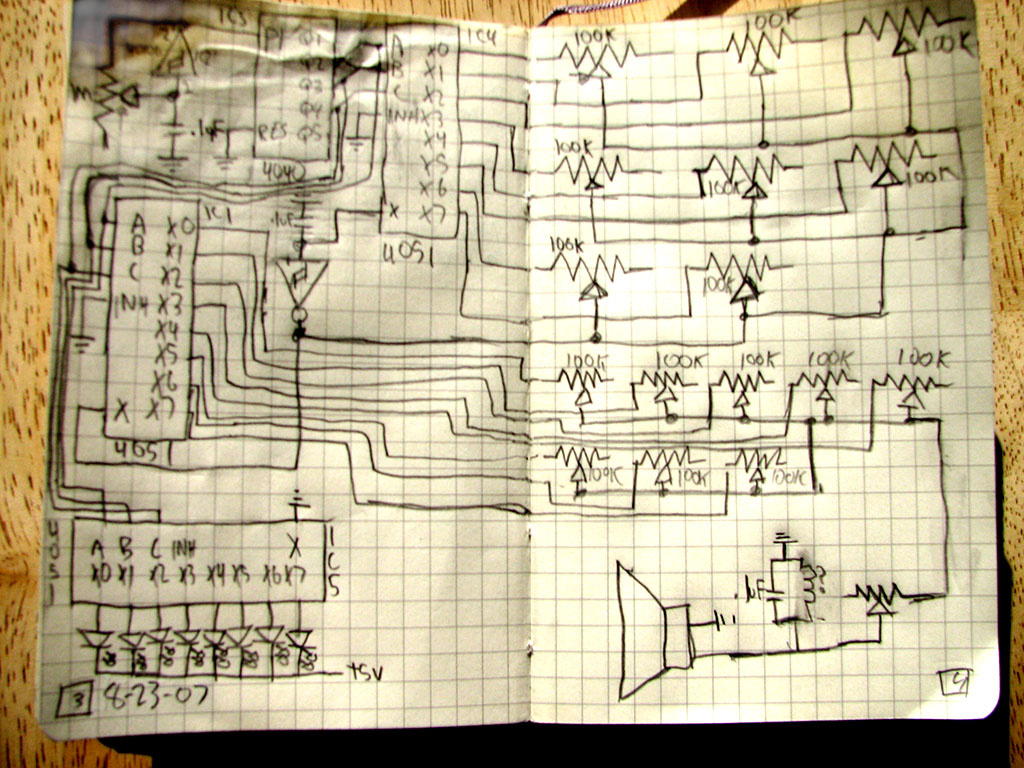 IC3
P1 Q1
Q2
Q3
Q4
.1µF
RES Q5
4040
IC4
A X0
B X1
C X2
INH X3
X4
X5
X6
X X7
4051
.1µF
IC1
A X0
B X1
C X2
INH X3
X4
X5
X6
X X7
4051
4051
IC5
A B C INH X
X0 X1 X2 X3 X4 X5 X6 X7
+5V
3 8-23-07
100K
100K
100K
100K
100K
100K
100K
100K
100K
100K
100K
100K
100K
100K
100K
100K
.1µF
?
4